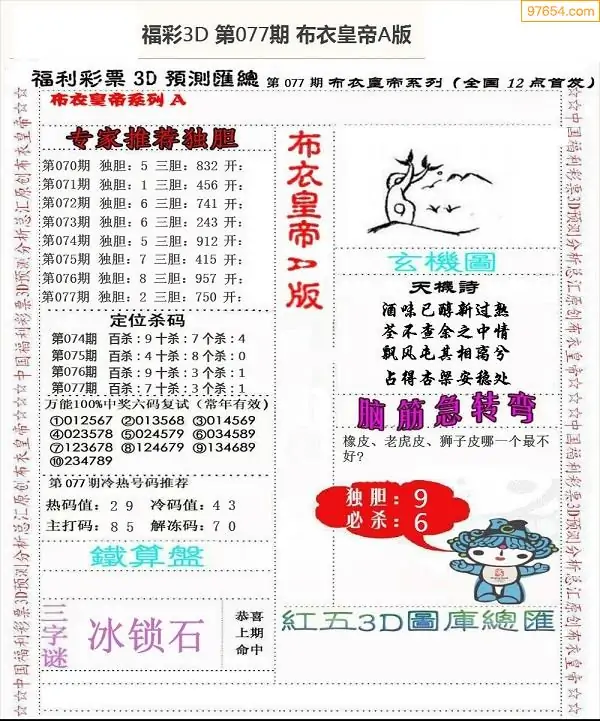 97654.com
福彩3D 第077期 布衣皇帝A版
福利彩票 3D 預測匯總 第 077 期 布衣皇帝系列 (全国 12 点首发)
布衣皇帝系列 A
专家推荐独胆
第070期 独胆: 5 三胆: 832 开:
第071期 独胆: 1 三胆: 456 开:
第072期 独胆: 6 三胆: 741 开:
第073期 独胆: 6 三胆: 243 开:
第074期 独胆: 5 三胆: 912 开:
第075期 独胆: 7 三胆: 415 开:
第076期 独胆: 8 三胆: 957 开:
第077期 独胆: 2 三胆: 750 开:
定位杀码
第074期 百杀: 9 十杀: 7 个杀: 4
第075期 百杀: 4 十杀: 8 个杀: 0
第076期 百杀: 9 十杀: 3 个杀: 1
第077期 百杀: 7 十杀: 3 个杀: 1
万能100%中奖六码复试 (常年有效)
①012567 ②013568 ③014569
④023578 ⑤024579 ⑥034589
⑦123678 ⑧124679 ⑨134689
⑩234789
第 077 期冷热号码推荐
热码值: 2 9 冷码值: 4 3
主打码: 8 5 解冻码: 7 0
鐵算盤
三字谜
冰锁石
恭喜
上期
命中
布衣皇帝A版
玄機圖
天機詩
酒味已醇新过熟
荃不查余之中情
飘风屯其相离兮
占得杏梁安稳处
脑筋急转弯
橡皮、老虎皮、狮子皮哪一个最不
好?
独胆: 9
必杀: 6
紅五3D圖庫總匯
☆☆中国福利彩票3D预测分析总汇原创布衣皇帝☆☆
☆☆中国福利彩票3D预测分析总汇原创布衣皇帝☆☆